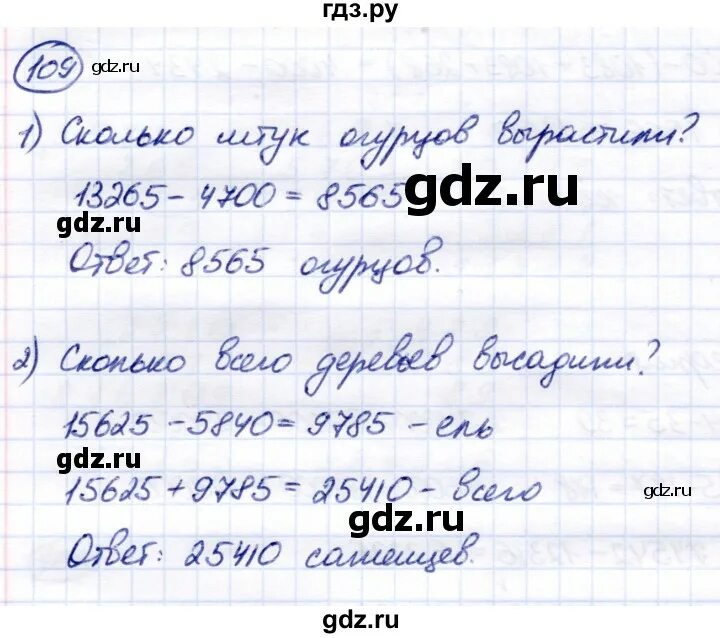 гдз.ру
109 gdz.ru
1) Сколько штук огурцов вырастили?
13265 - 4700 = 8565 gdz.ru
gdz.ru
Ответ: 8565 огурцов.
2) Сколько всего деревьев высадили?
15625 - 5840 = 9785 - ель
gdz.ru
15625 + 9785 = 25410 - всего gdz.ru
gdz.ru
Ответ: 25410 саженцев.
gdz.ru